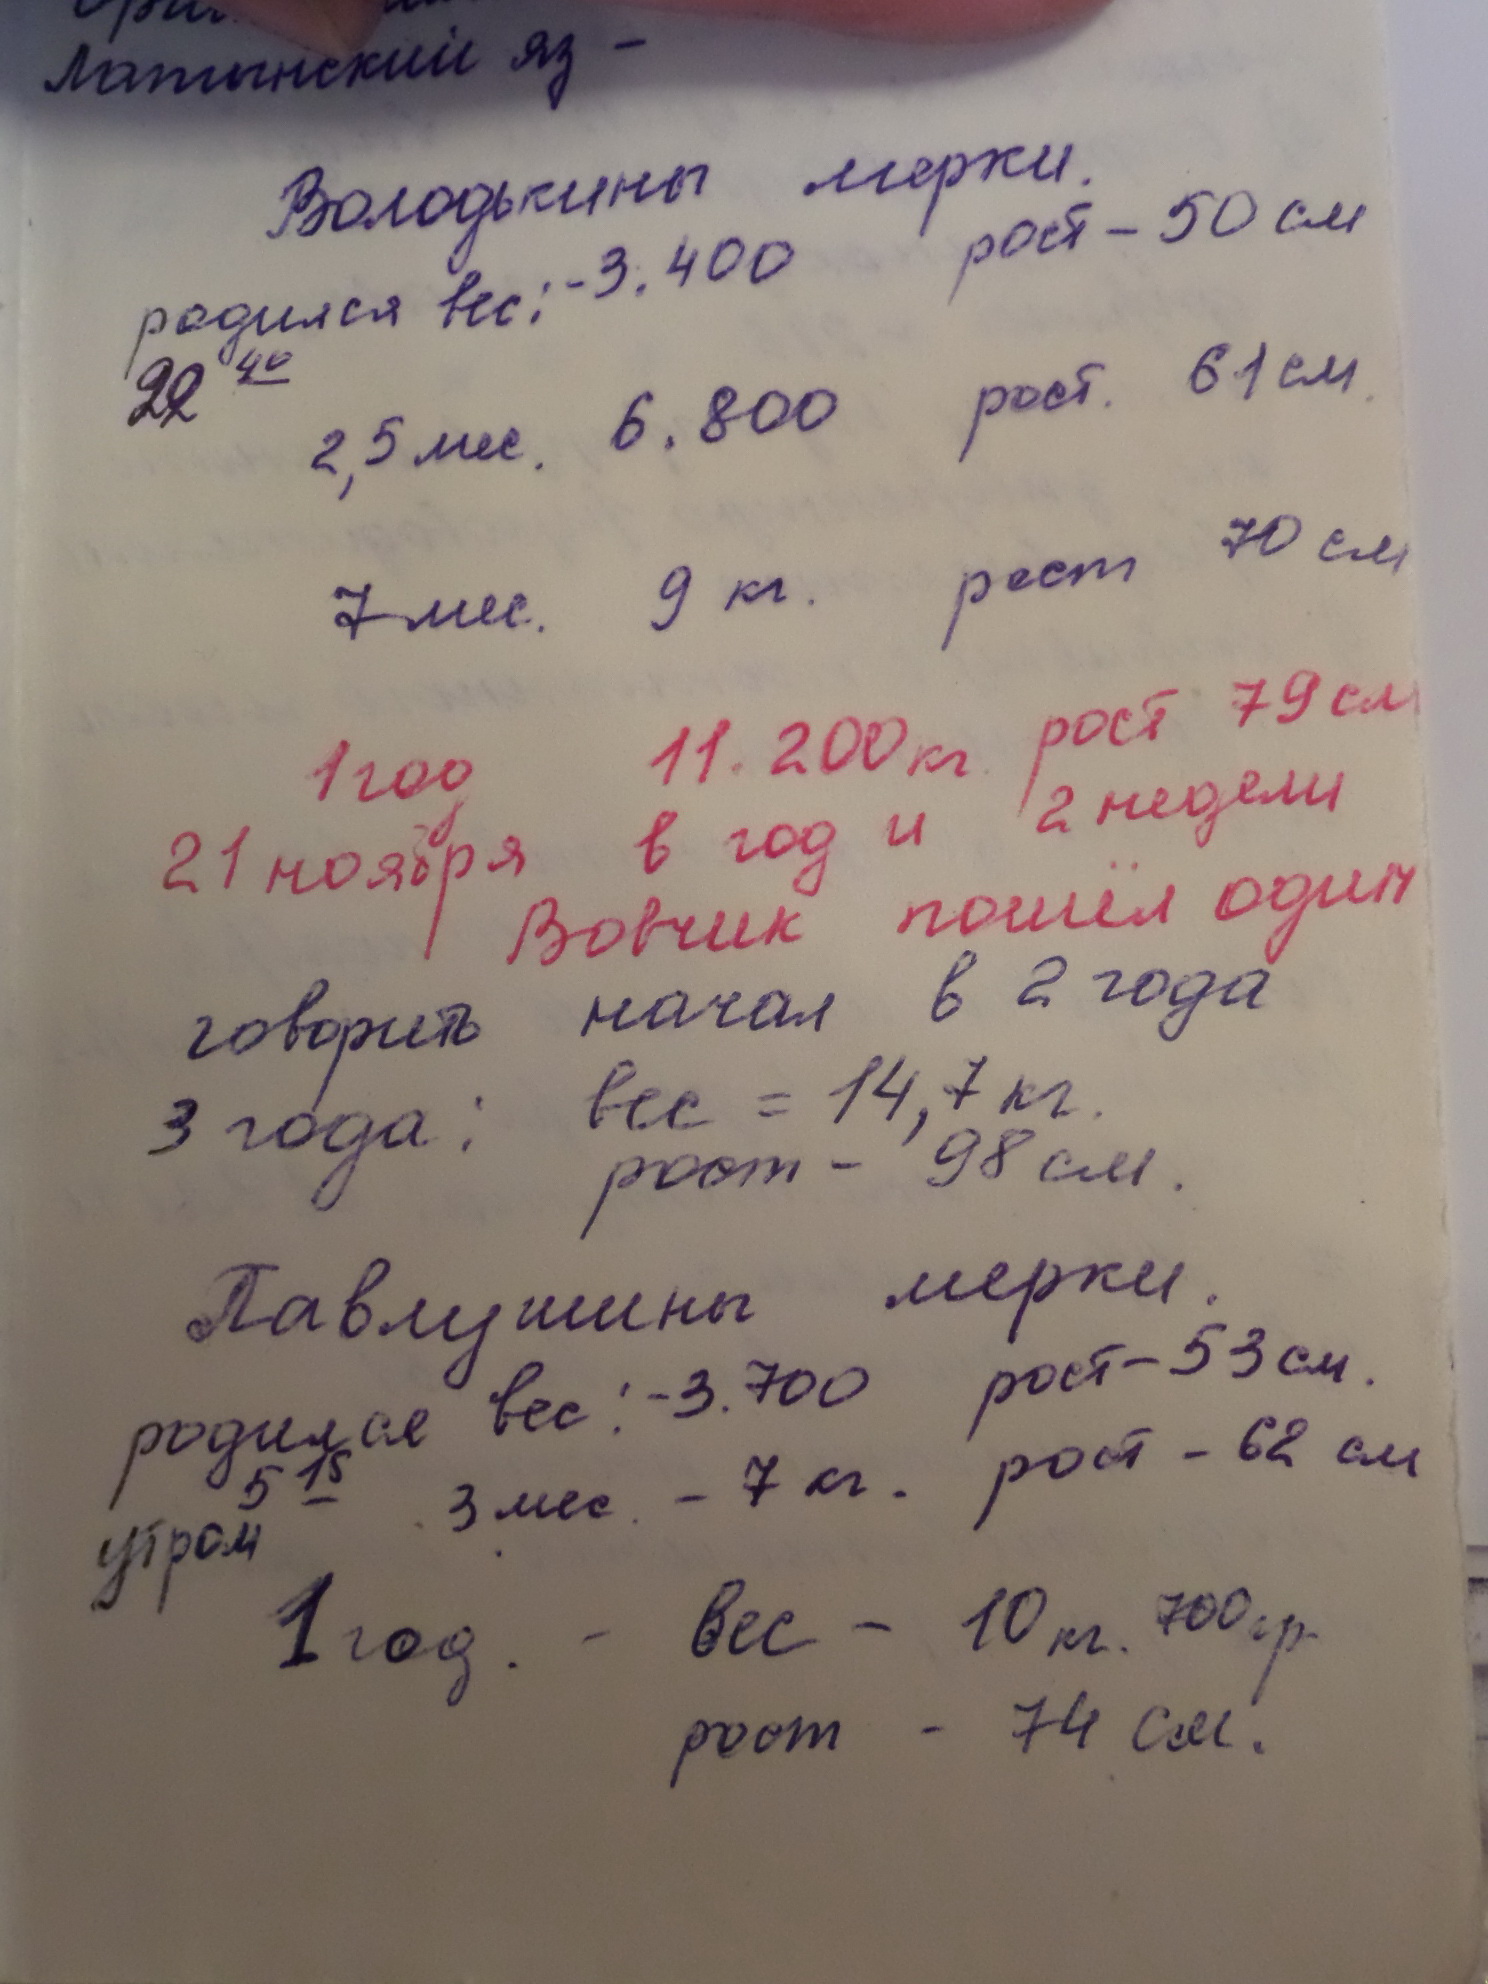 Латынский яз -
Володькины мерки.
родился вес: -3.400 рост - 50 см
22 40
2,5 мес. 6.800 рост. 61 см.
7 мес. 9 кг. рост 70 см
1 год 11.200 кг. рост 79 см
21 ноября в год и 2 недели
Вовчик пошёл один
говорить начал в 2 года
3 года: вес = 14,7 кг.
рост - 98 см.
Павлушины мерки.
родился вес: -3.700 рост - 53 см.
5 15 3 мес. - 7 кг. рост - 62 см
утром
1 год. - вес - 10 кг. 700 гр.
рост - 74 см.